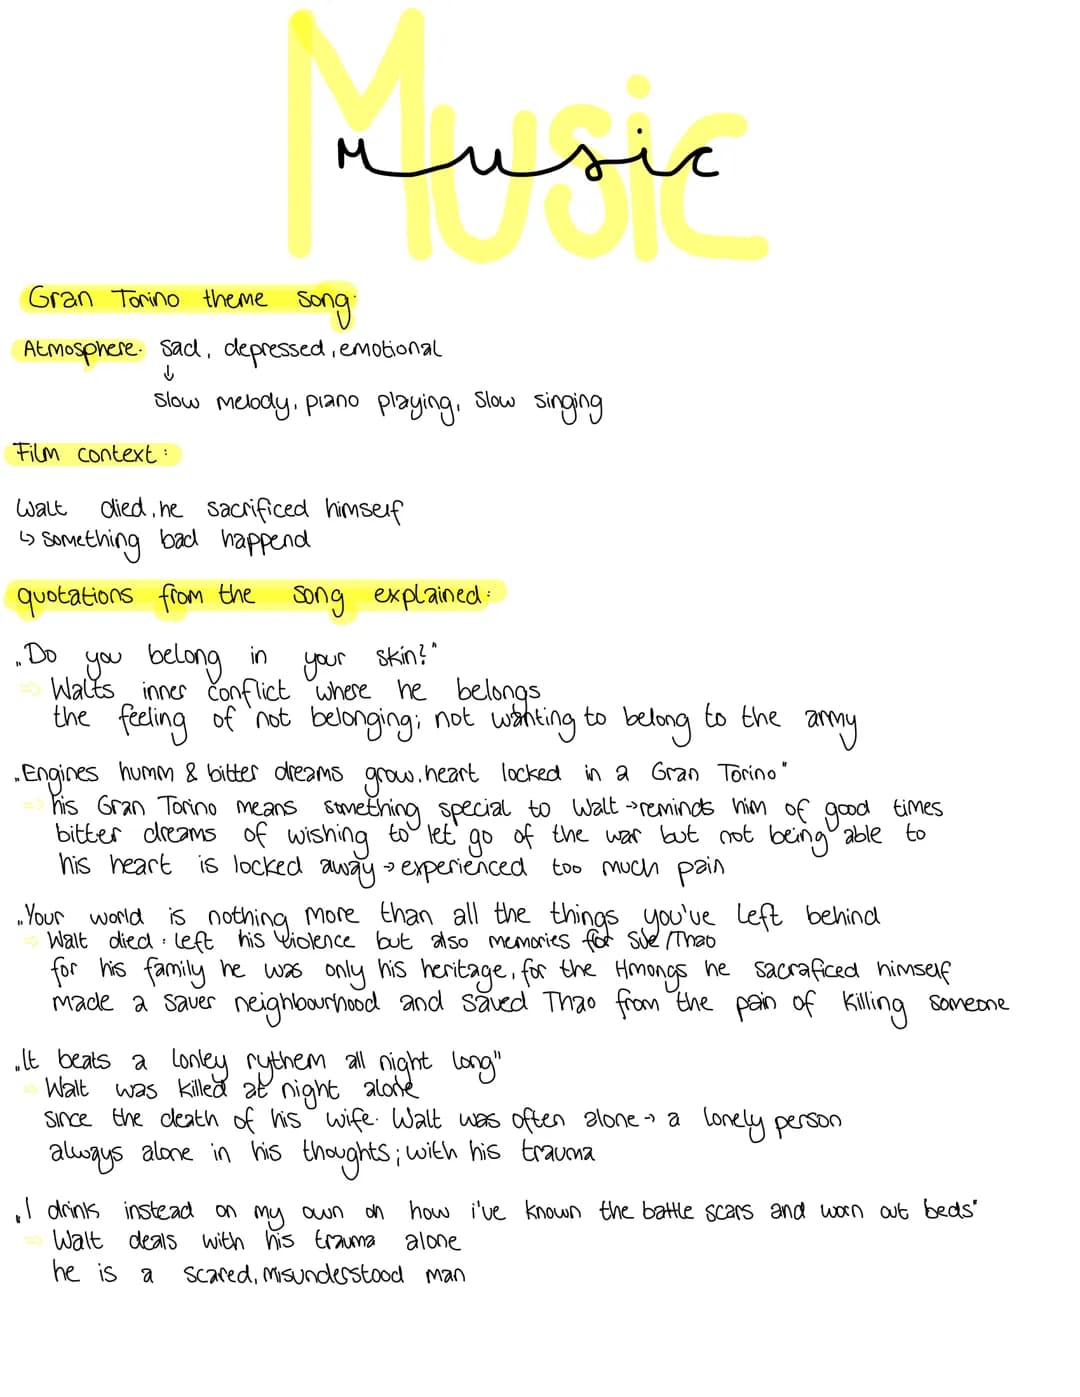 Music
Music
Gran Torino theme song:
Atmosphere: sad, depressed, emotional
↓
slow melody, piano playing, slow singing
Film context:
Walt died, he sacrificed himself
↳ something bad happend
quotations from the song explained:
„Do you belong in your skin?"
⇒ Walts inner conflict where he belongs
the feeling of not belonging; not wanting to belong to the army
„Engines humm & bitter dreams grow, heart locked in a Gran Torino"
⇒ his Gran Torino means something special to Walt → reminds him of good times
bitter dreams of wishing to let go of the war but not being able to
his heart is locked away → experienced too much pain
„Your world is nothing more than all the things you've left behind
⇒ Walt died: left his violence but also memories for Sue/Thao
for his family he was only his heritage, for the Hmongs he sacraficed himself
made a saver neighbourhood and saved Thao from the pain of killing someone
„It beats a lonley rythem all night long"
⇒ Walt was killed at night alone
since the death of his wife. Walt was often alone → a lonely person
always alone in his thoughts; with his trauma
„I drink instead on my own oh how i've known the battle scars and worn out beds"
⇒ Walt deals with his trauma alone
he is a scared, misunderstood man